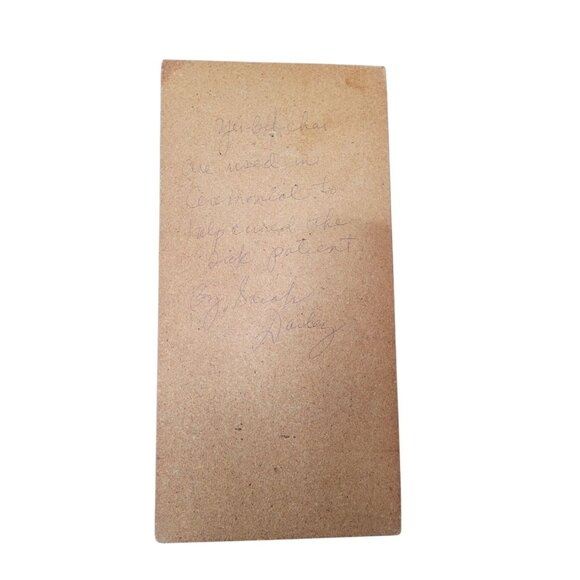 Yei-be-chai
are used in
Ceremonial to
help cured the
Sick patient
By Sarah